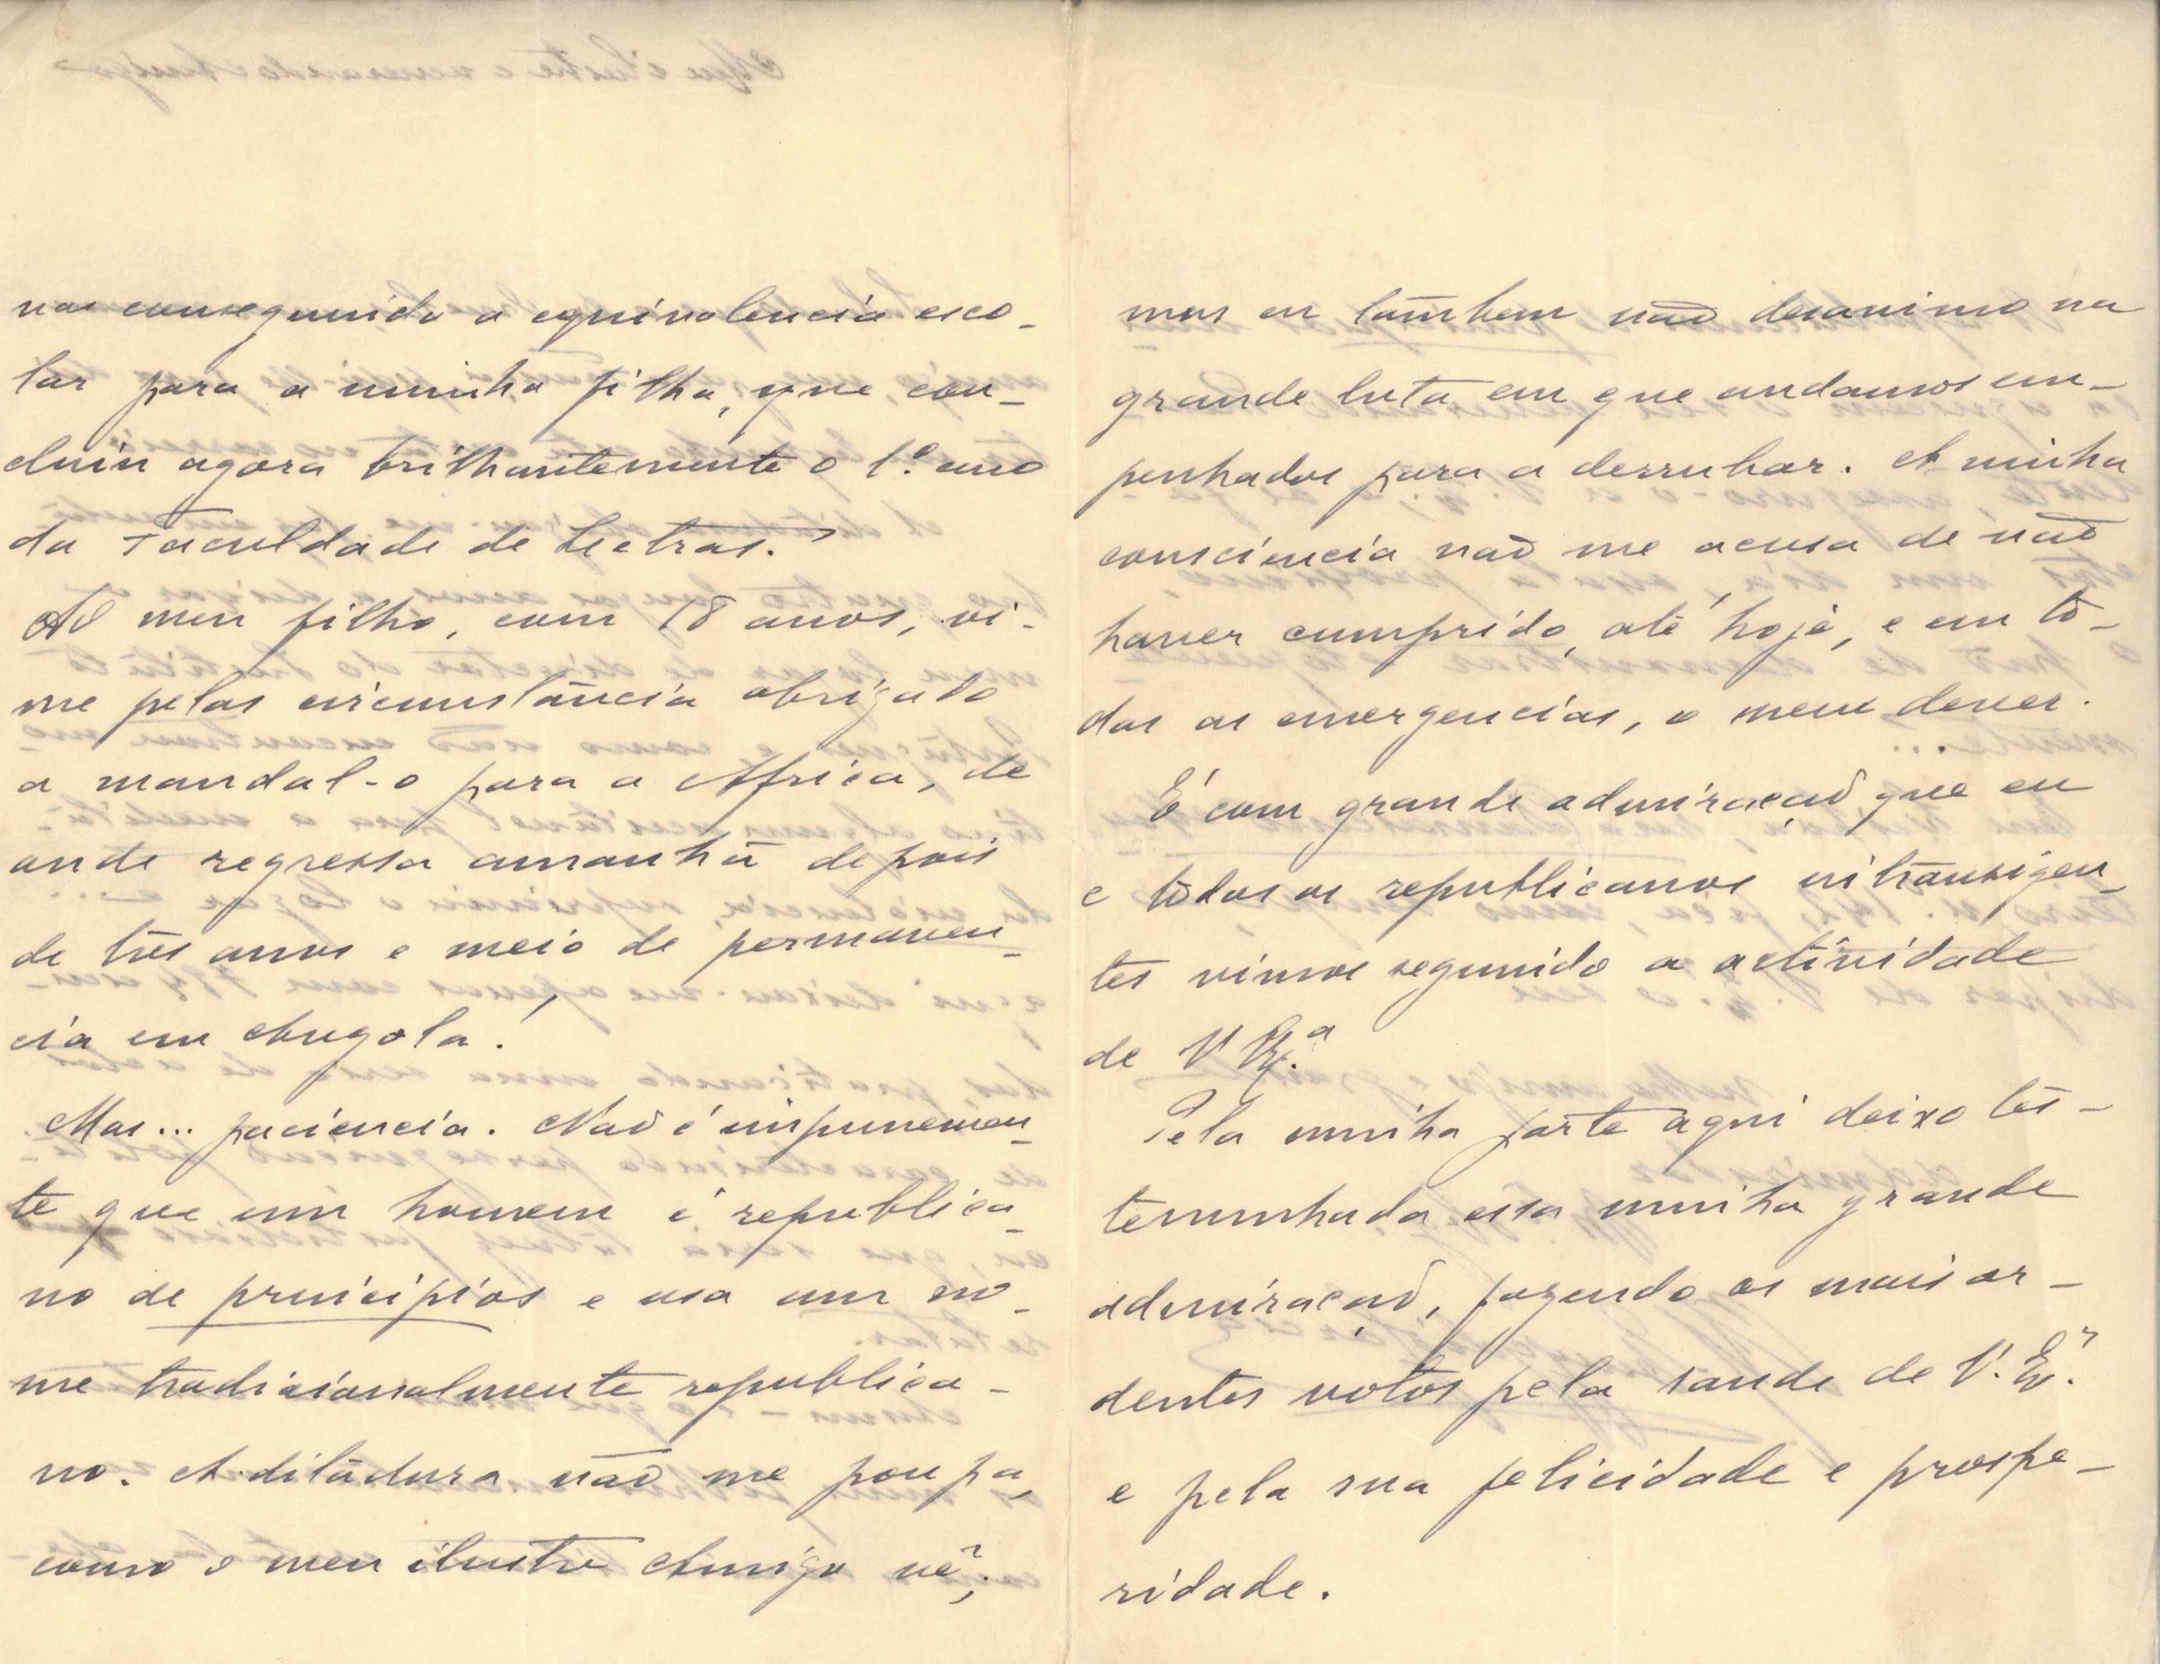 nos conseguindo a equivalencia esco-
lar para a minha filha, que con-
cluiu agora brilhantemente o 1.º ano
da Faculdade de Lectras.
Ao meu filho, com 18 anos, vi-
me pelas circunstância obrigado
a mandal-o para a Africa, de
onde regressa amanhã depois
de três anos e meio de permanen-
cia em Angola!
Mas... paciencia. Não é impunemen-
te que um homem é republica-
no de principios e usa um no-
me tradicionalmente republica-
no. A ditadura não me poupa,
como o meu ilustre Amigo vê;
mas eu tambem não desanimo na
grande luta em que andamos em-
penhados para a derrubar. A minha
consciencia não me acusa de não
haver cumprido, até hoje, e em tô-
das as emergencias, o meu dever.
É com grande admiração que eu
e tôdos os republicanos intransigen-
tes vimos seguindo a actividade
de V. Ex.ª
Pela minha parte aqui deixo tes-
temunhada essa minha grande
admiração, fazendo os mais ar-
dentes votos pela saude de V. Ex.ª
e pela sua felicidade e prospe-
ridade.